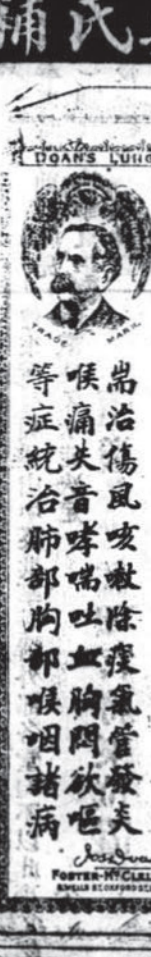 補氏
DOAN'S LUNG
TRADE MARK
耑治傷風咳嗽除痰氣管發炎
喉痛失音哮喘吐血胸悶欲嘔
等症統治肺部胸部喉咽諸病
FOSTER-McCLEL
8, WELLS ST. OXFORD ST